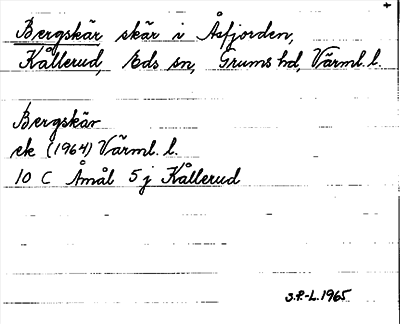 Bergskär skär i Åsfjorden,
Kållerud, Eds sn, Grums hd, Värml. l.
Bergskär
ek (1964) Värml. l.
10 C Åmål 5 j Kållerud
S.P.-L. 1965